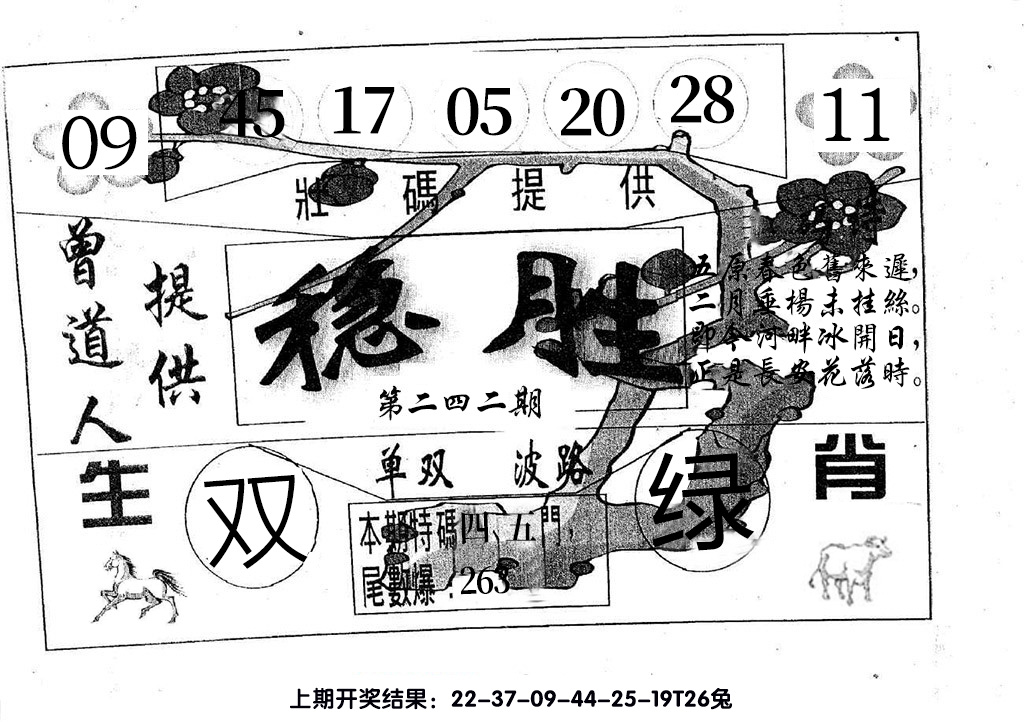 09 45 17 05 20 28 11
壯碼提供
曾道人
提供
穩胜
第二四二期
特
五原春色舊來遲，
二月垂楊未挂絲。
即今河畔冰開日，
正是長安花落時。
单双 波路
生肖
双
绿
本期特碼四、五門，
尾數爆：263
上期开奖结果：22-37-09-44-25-19T26兔